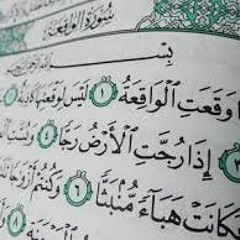 سُورَةُ الْوَاقِعَةِ
بِسْمِ
وَقَعَتِ ٱلْوَاقِعَةُ ١ لَيْسَ لِوَقْعَتِهَا كَاذِبَةٌ
٣ إِذَا رُجَّتِ ٱلْأَرْضُ رَجًّا ٤ وَبُسَّتِ
هَبَآءً مُّنۢبَثًّا ٦ وَكُنتُمْ أَزْوَٰجًا